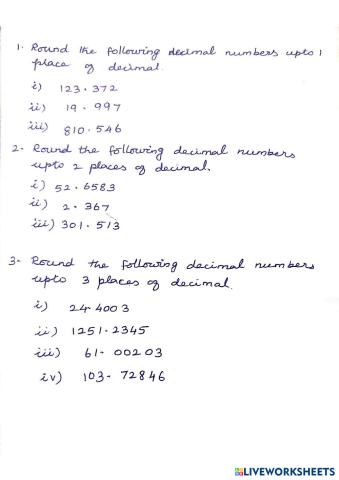 1. Round the following decimal numbers upto 1
place of decimal.
i) 123.372
ii) 19.997
iii) 810.546
2- Round the following decimal numbers
upto 2 places of decimal.
i) 52.6583
ii) 2.367
iii) 301.513
3- Round the following decimal numbers
upto 3 places of decimal.
i) 24.4003
ii) 1251.2345
iii) 61.00203
iv) 103.72846
LIVEWORKSHEETS